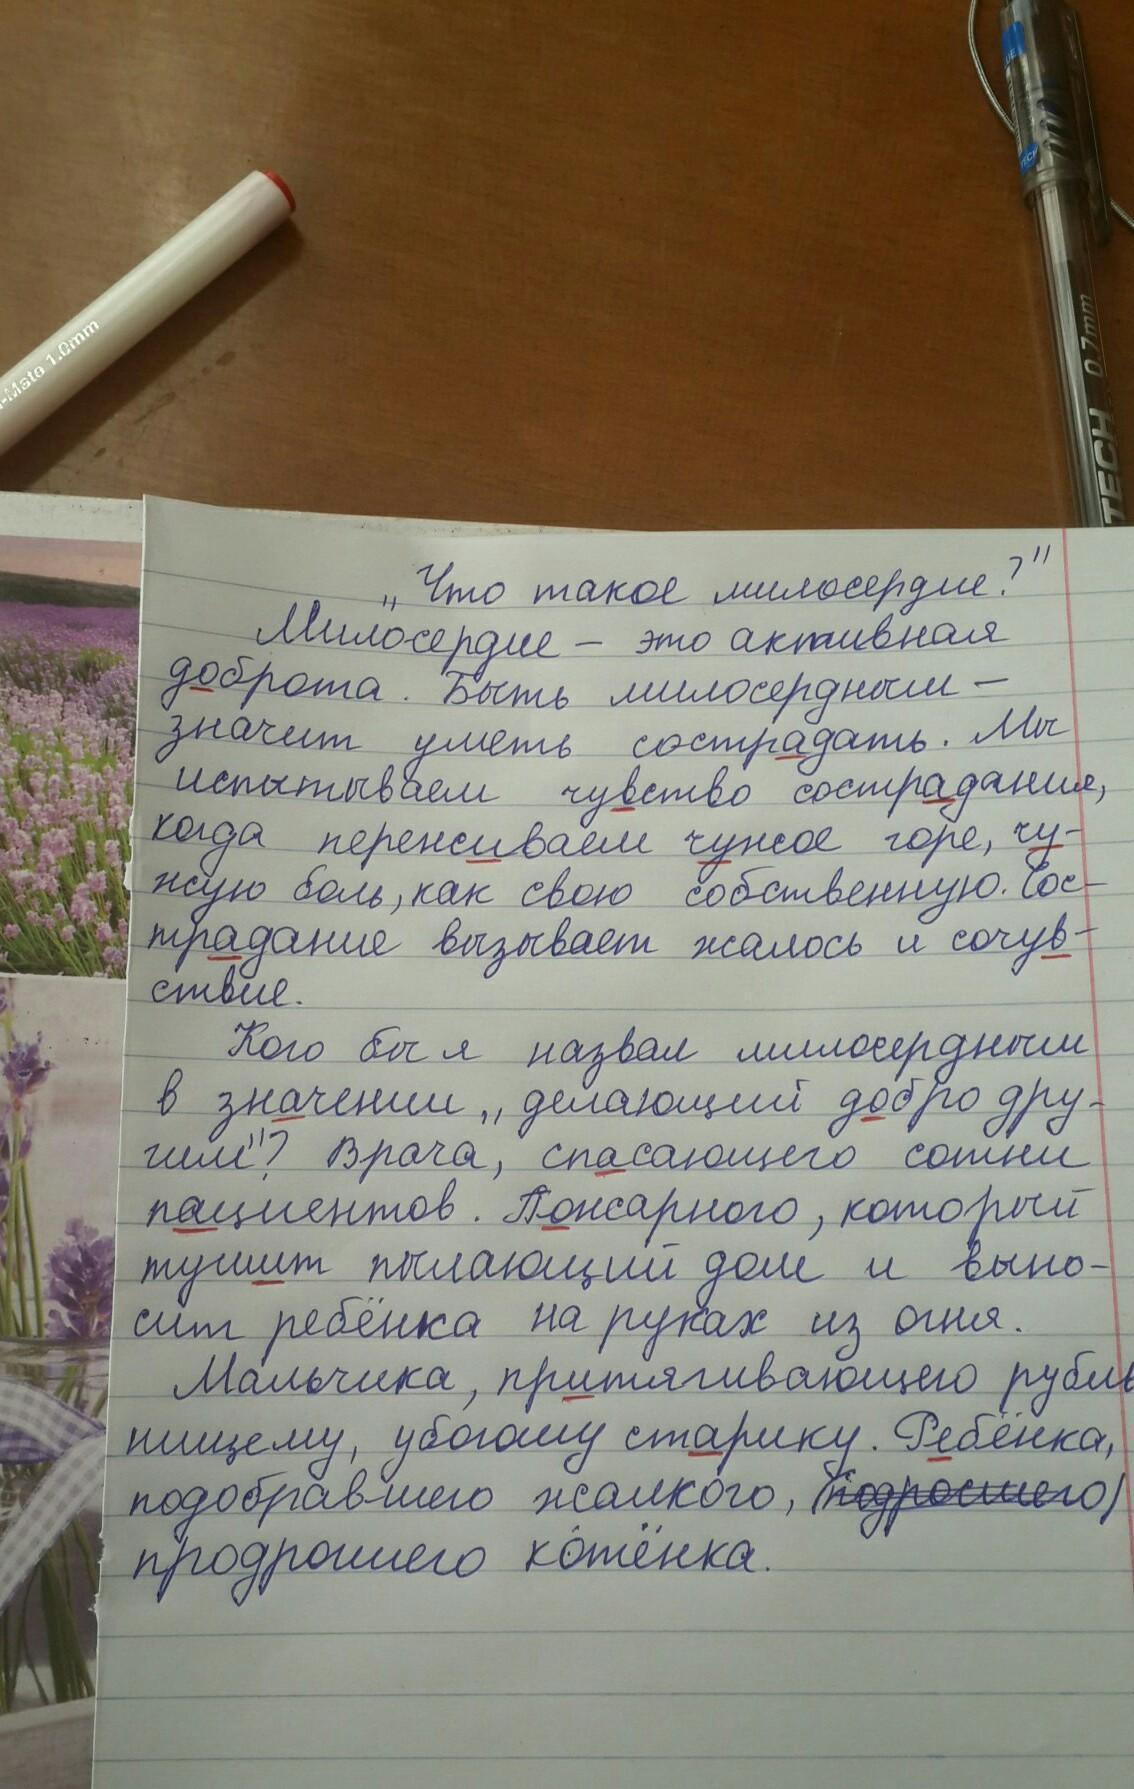 -Mate 1.0mm
UE
TECH
TECH 0.7mm
„Что такое милосердие?"
Милосердие – это активная
доброта. Быть милосердным –
значит уметь сострадать. Мы
испытываем чувство сострадания,
когда переживаем чужое горе, чу-
жую боль, как свою собственную. Сос-
традание вызывает жалось и сочув-
ствие.
Кого бы я назвал милосердным
в значении „делающий добро дру-
гим"? Врача, спасающего сотни
пациентов. Пожарного, который
тушит пылающий дом и выно-
сит ребёнка на руках из огня.
Мальчика, притягивающего рубль
нищему, убогому старику. Ребёнка,
подобравшего жалкого, (подросшего)
продрошего котёнка.